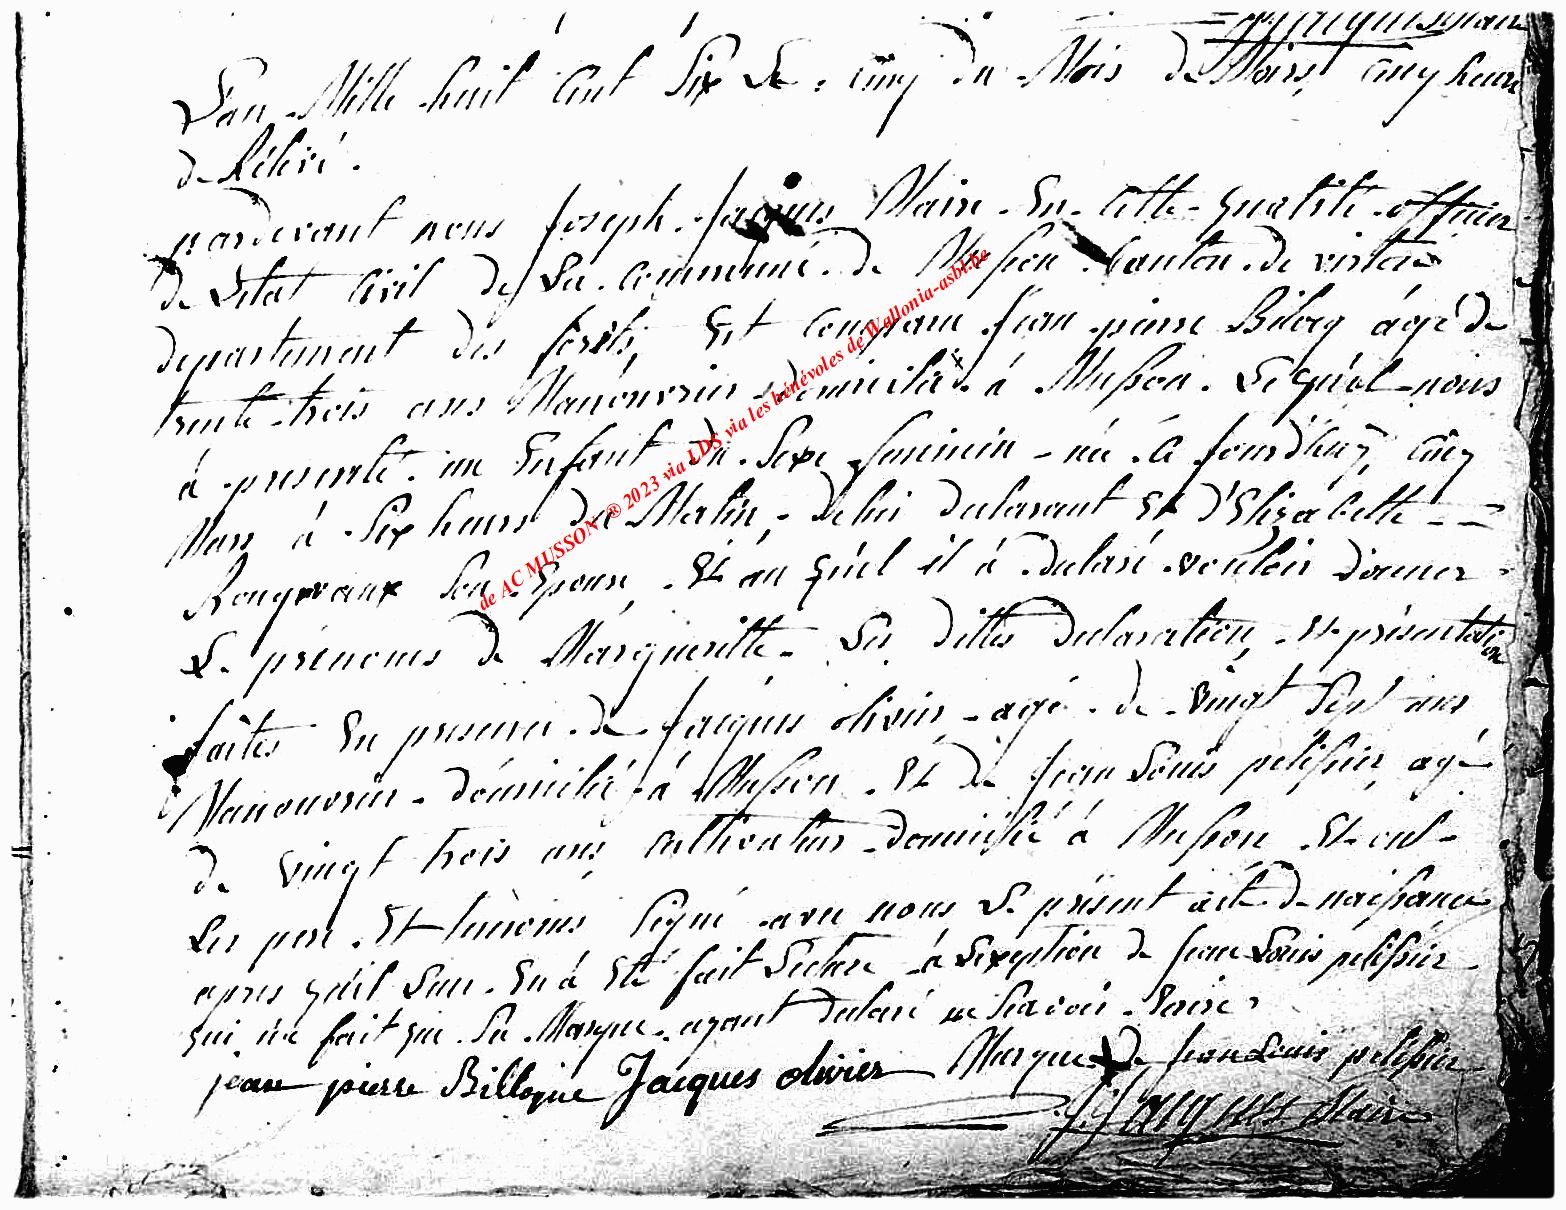 Jacques Maire
L'an Mille huit Cent Six Le cinq du Mois de Mars, cinq heure
de Rélévé.
pardevant nous Joseph Jacques Maire En Cette qualité officier
de L'état Civil de La Commune de Musson Canton de virton
departement des forêts, Est Comparu Jean pierre Bilocq âgé de
trente trois ans Manouvrier domicilié à Musson. Lequel nous
à presenté un Enfant du Sexe feminin née à Jourd'huy, cinq
Mars à Six heures du Matin, de lui declarant Et d'Elizabette
Rougevaux Son Epouse, Et au quel il à declaré vouloir donner
Le prénoms de Margueritte Les dittes declaration, Et présentation
faites En presence de Jacques olivier, agé de vingt Sept ans
Manouvrier domicilié à Musson Et de Jean Louis pelissier agé
de vingt trois ans Cultivateur domicilié à Musson Et ont
Les pere Et témoins Signé avec nous Le présent acte de naissance
apres qu'il Leur En à Eté fait Lecture à L'exeption de Jean Louis pelissier
qui ne fait que Sa Marque ayant declaré ne Scavoir Ecrire
jean pierre Billoque Jacques olivier Marque de Jean Louis pelissier
J. Jacques Maire
de AC MUSSON ® 2023 via LDS via les bénévoles de Wallonia-asbl.be